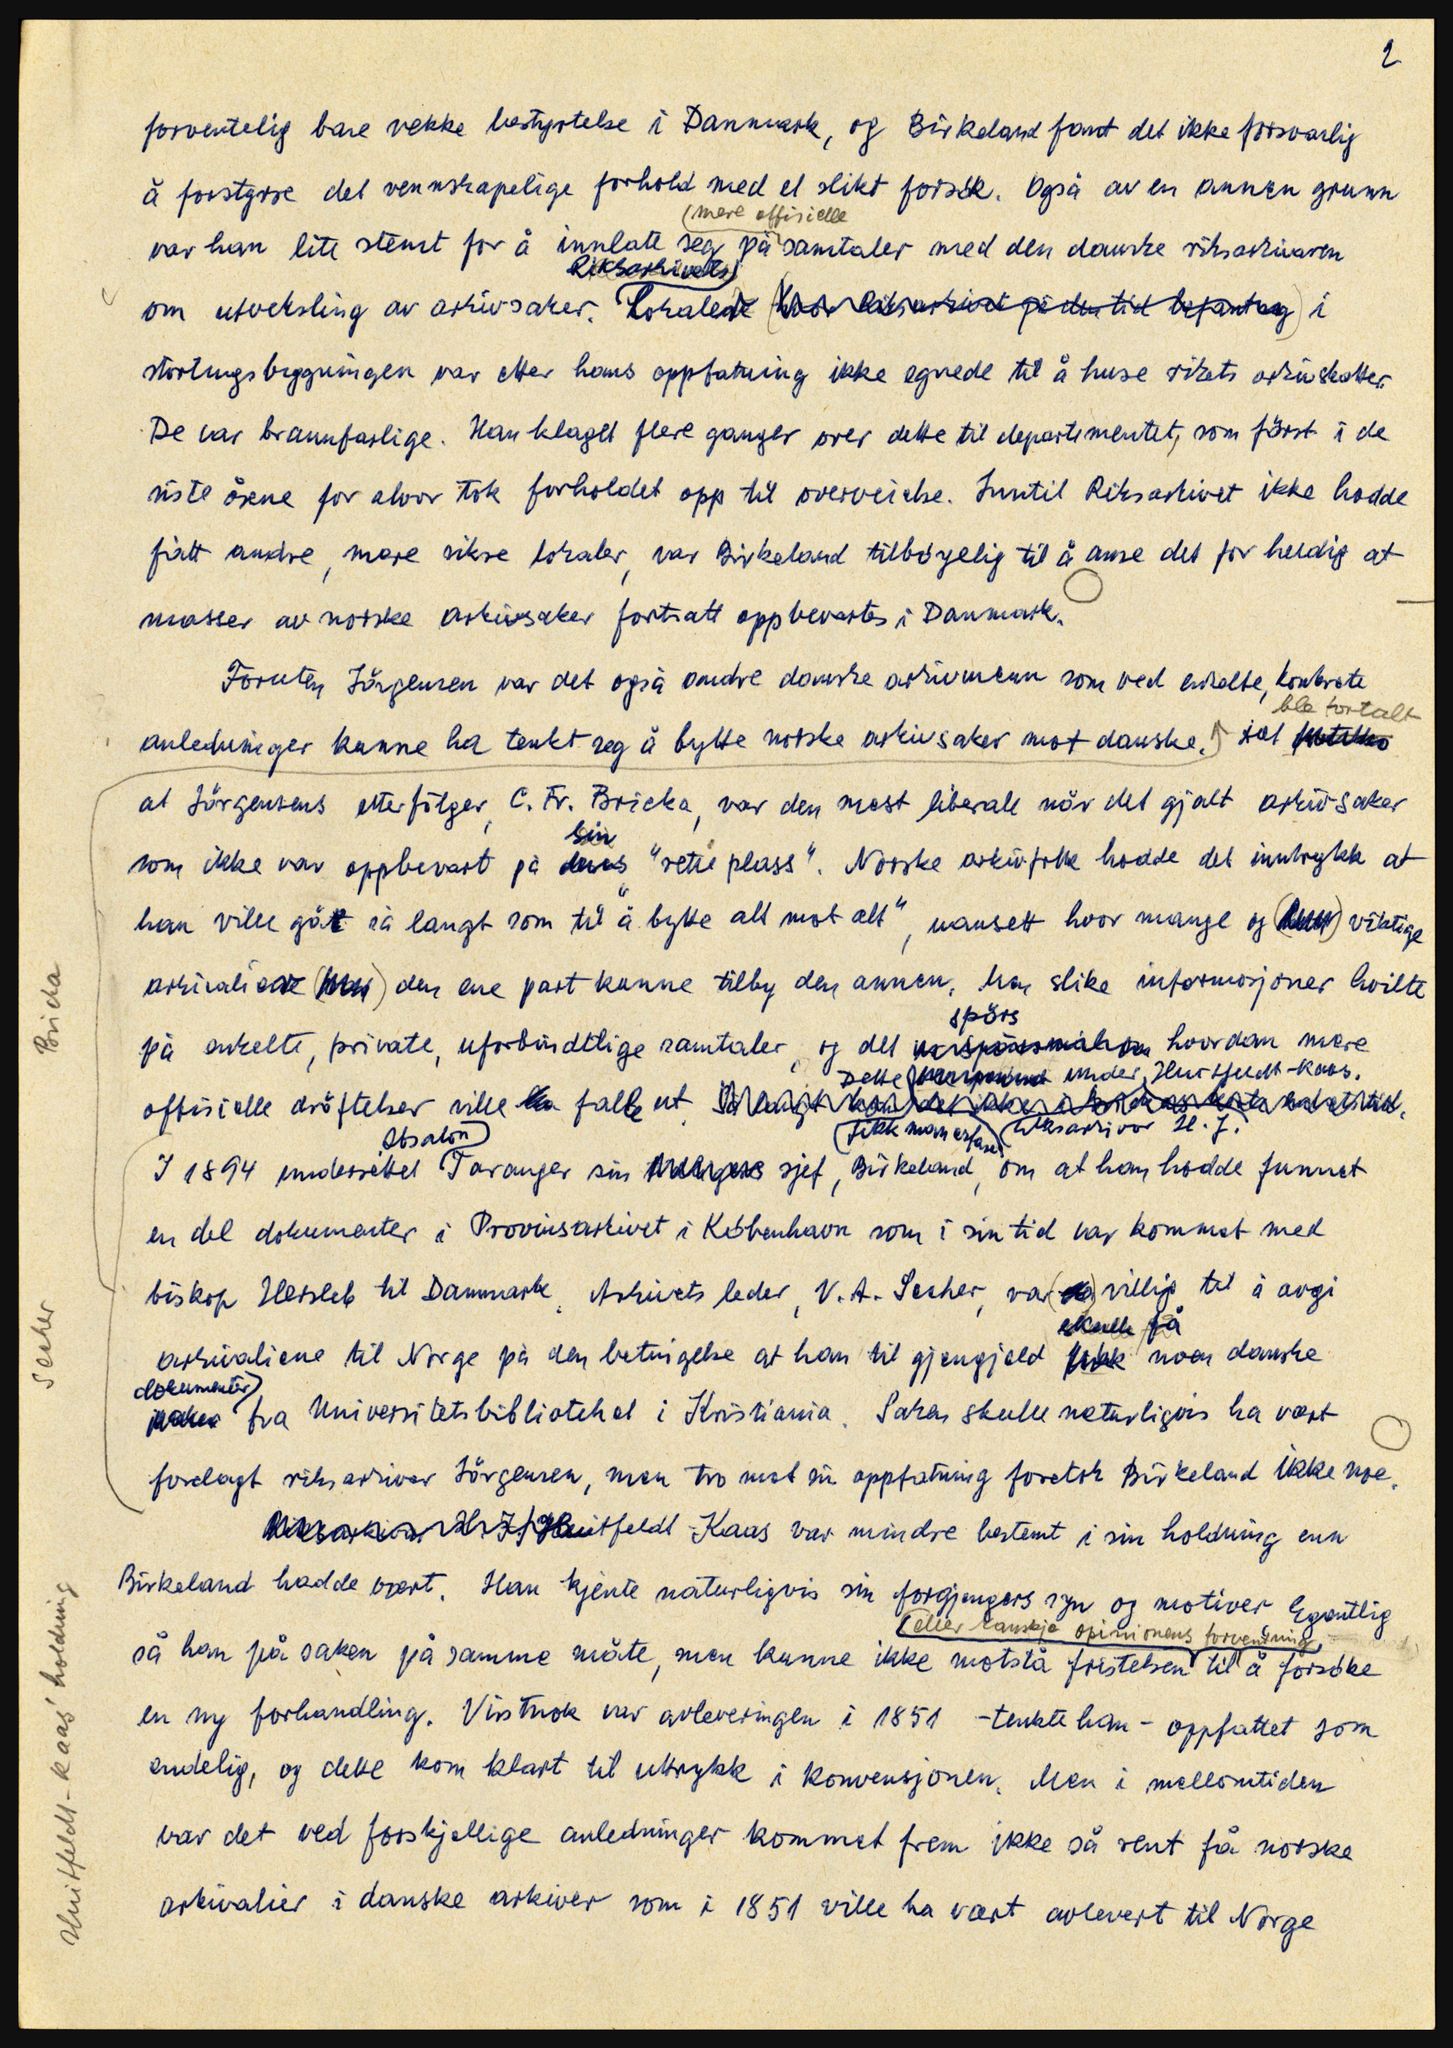 2
forventelig bare vekke bestyrtelse i Danmark, og Birkeland fant det ikke forsvarlig
å forstyrre det vennskapelige forhold med et slikt forsøk. Også av en annen grunn
(mere offisielle
var han lite stemt for å innlate seg på samtaler med den danske riksarkivaren
Riksarkivets
om utveksling av arkivsaker. Lokalene (hvor Riksarkivet på den tid befant seg) i
stortingsbygningen var etter hans oppfatning ikke egnede til å huse rikets arkivskatter.
De var brannfarlige. Han klaget flere ganger over dette til departementet, som først i de
siste årene for alvor tok forholdet opp til overveielse. Inntil Riksarkivet ikke hadde
fått andre, mere sikre lokaler, var Birkeland tilbøyelig til å anse det for heldig at
masser av norske arkivsaker fortsatt oppbevartes i Danmark.
Foruten Jörgensen var det også andre danske arkivmenn som ved enkelte, konkrete
ble fortalt
anledninger kunne ha tenkt seg å bytte norske arkivsaker mot danske. Det
at Jörgensens etterfölger, C. Fr. Bricka, var den mest liberale når det gjalt arkivsaker
sin
som ikke var oppbevart på deres "rette plass". Norske arkivfolk hadde det inntrykk at
han ville gått så langt som til "å bytte alt mot alt", uansett hvor mange og (hvor) viktige
arkivalier den ene part kunne tilby den annen. Men slike informasjoner hvilte
spörs
på enkelte, private, uforbindtlige samtaler, og det er spörsmål om hvordan mere
Dette under Huitfeldt-Kaas.
offisielle dröftelser ville falle ut.
Absalon) (fikk man erfare (riksarkivar H. J.
I 1894 underrettet Taranger sin sjef, Birkeland, om at han hadde funnet
en del dokumenter i Provinsarkivet i København som i sin tid var kommet med
biskop Hersleb til Danmark. Arkivets leder, V. A. Secher, var villig til å avgi
skulle få
arkivaliene til Norge på den betingelse at han til gjengjeld fikk noen danske
dokumenter)
saker fra Universitetsbiblioteket i Kristiania. Saken skulle naturligvis ha vært
forelagt riksarkivar Jörgensen, men tro mot sin oppfatning foretok Birkeland ikke noe.
Riksarkivar H. J. Huitfeldt-Kaas var mindre bestemt i sin holdning enn
Birkeland hadde vært. Han kjente naturligvis sin forgjengers syn og motiver. Egentlig
(eller kanskje opinionens forventning)
så han på saken på samme måte, men kunne ikke motstå fristelsen til å forsöke
en ny forhandling. Visstnok var avleveringen i 1851 - tenkte han - oppfattet som
endelig, og dette kom klart til uttrykk i konvensjonen. Men i mellomtiden
var det ved forskjellige anledninger kommet frem ikke så rent få norske
arkivalier i danske arkiver som i 1851 ville ha vært avlevert til Norge
Bricka
Secher
Huitfeldt-Kaas' holdning